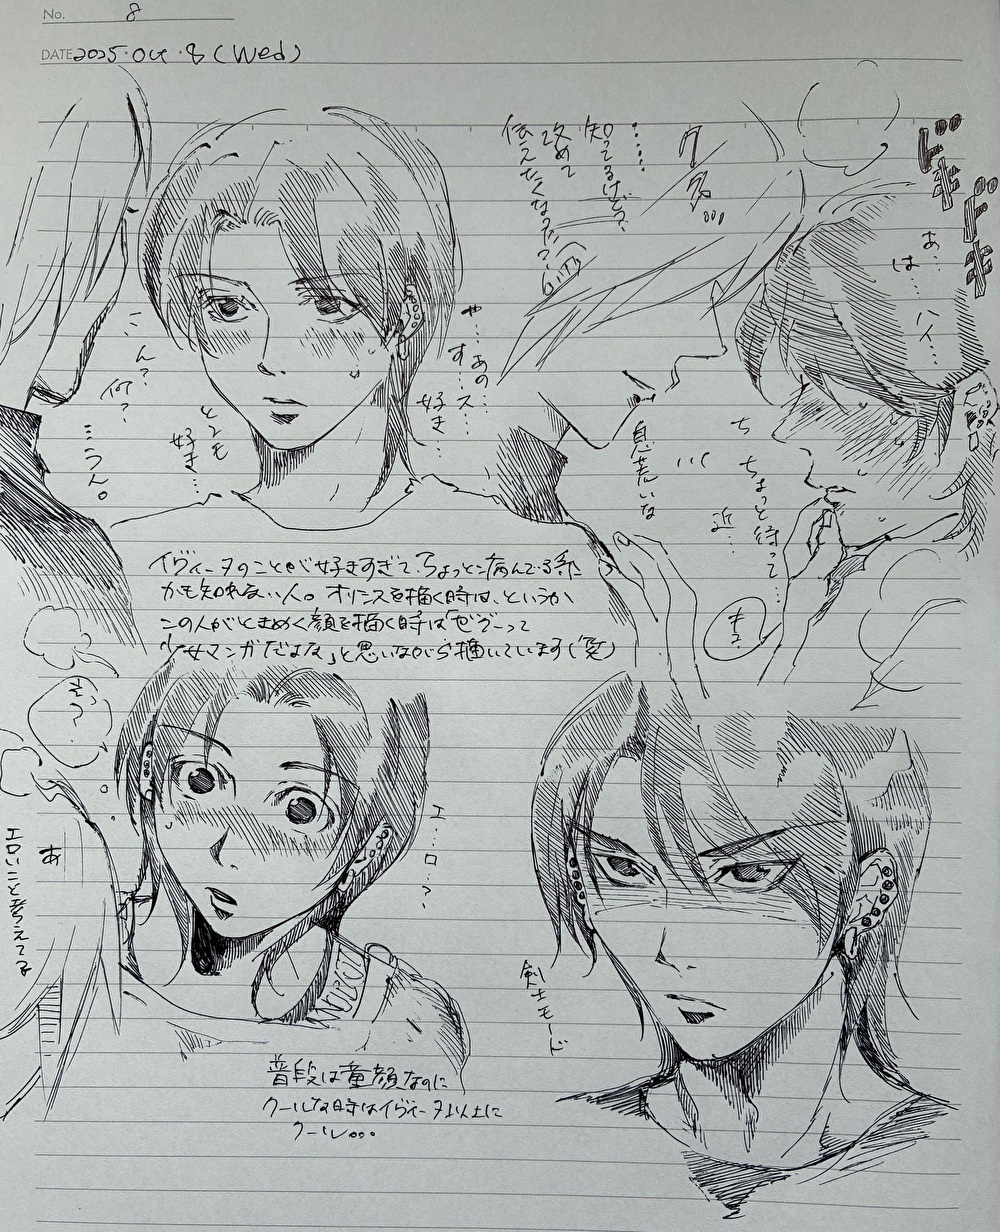 No. 8
DATE 2025・Oct・8(Wed)
ドキ
ドキ
あ…
は…ハイ…
……
知ってるけど、
改めて
伝えたくなって
や…あの…
す…ス…
好き…
ん?
何?
…うん。
とても
好き…
息荒いな
ち
ちょっと待って
近…
もう?
イヴィーヌのことが好きすぎて、ちょっと病んでる系
かも知れない人。オリンスを描く時は、というか
この人がときめく顔を描く時は「ぜってー
少女マンガだよな」と思いながら描いています(笑)
そ?
あ
エロいこと考えてる
エ…ロ…?
剣士モード
普段は童顔なのに
クールな時はイヴィーヌ以上に
クール…